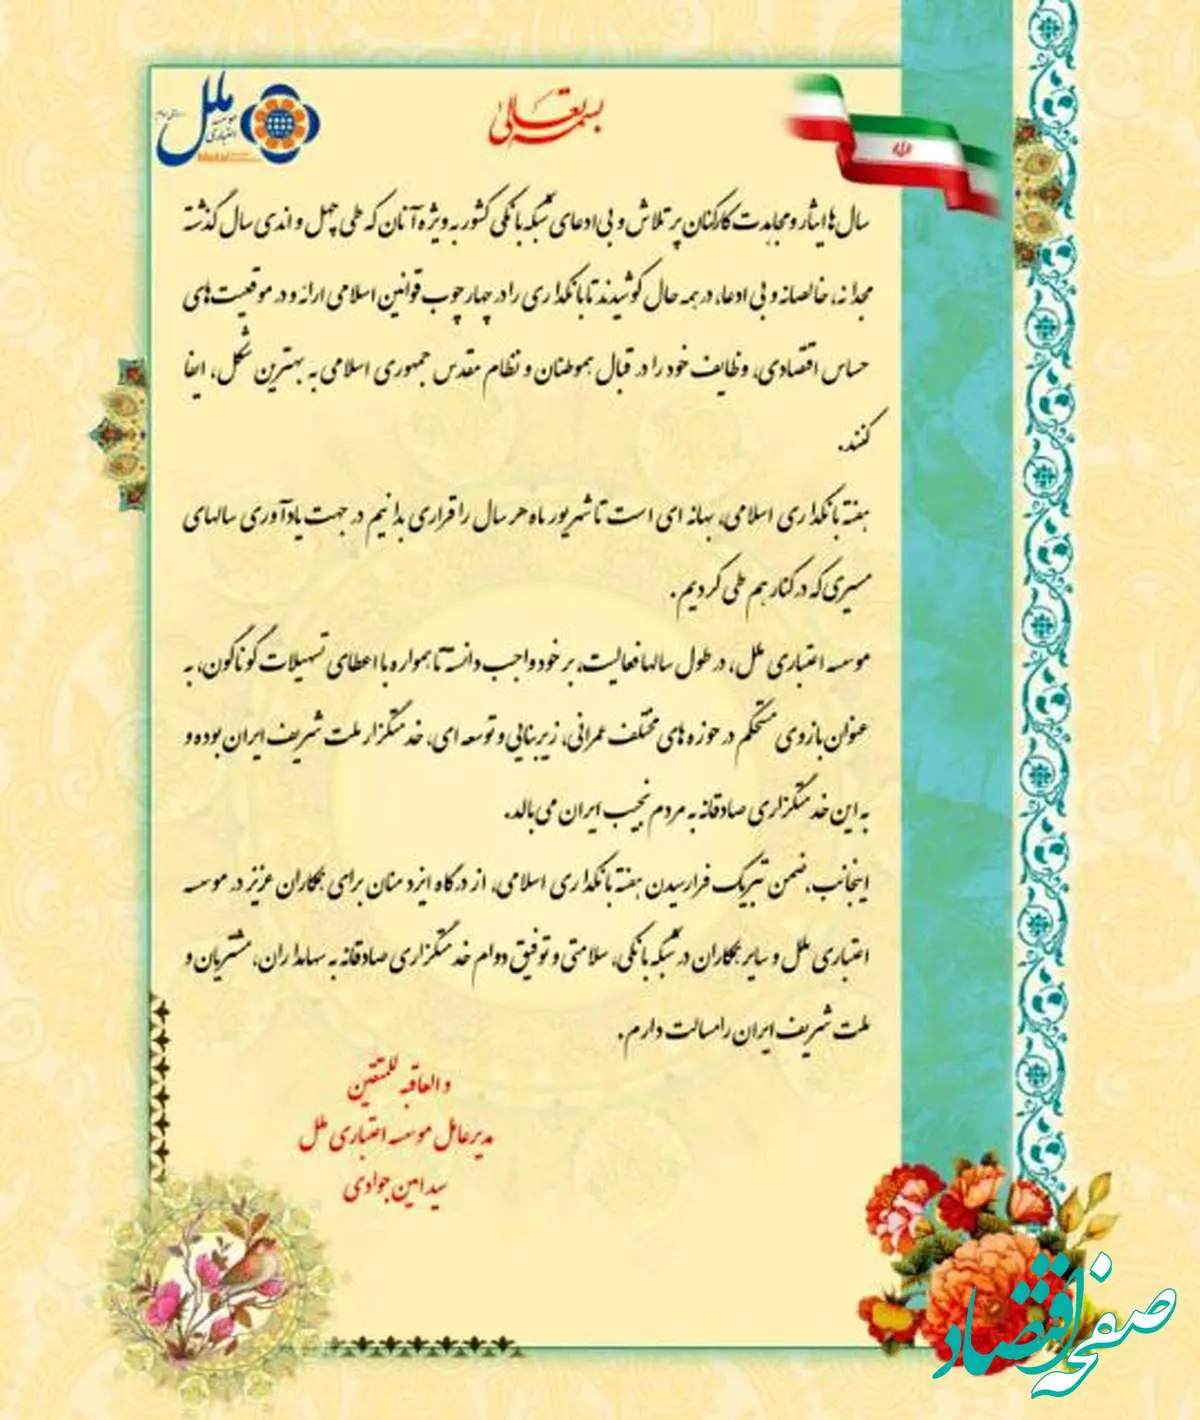 بسمه تعالی
ملل
موسسه
اعتباری
سال ها ایثار و مجاهدت کارکنان پر تلاش و بی ادعای شبکه بانکی کشور به ویژه آنان که طی چهل و اندی سال گذشته
مجدانه، خالصانه و بی ادعا، در همه حال کوشیدند تا بانکداری را در چهارچوب قوانین اسلامی ارائه و در موقعیت های
حساس اقتصادی، وظایف خود را در قبال هموطنان و نظام مقدس جمهوری اسلامی به بهترین شکل، ایفا
کنند.
هفته بانکداری اسلامی، بهانه ای است تا شهریور ماه هر سال را قراری بدانیم در جهت یادآوری سالهای
مسیری که در کنار هم طی کردیم.
موسسه اعتباری ملل، در طول سالها فعالیت، بر خود واجب دانسته تا همواره با اعطای تسهیلات گوناگون، به
عنوان بازوی مستحکم در حوزه های مختلف عمرانی، زیربنایی و توسعه ای، خدمتگزار ملت شریف ایران بوده و
به این خدمتگزاری صادقانه به مردم نجیب ایران می بالد.
اینجانب، ضمن تبریک فرارسیدن هفته بانکداری اسلامی، از درگاه ایزد منان برای همکاران عزیز در موسسه
اعتباری ملل و سایر همکاران در شبکه بانکی، سلامتی و توفیق دوام خدمتگزاری صادقانه به سهامداران، مشتریان و
ملت شریف ایران را مسالت دارم.
و العاقبه للمتقین
مدیرعامل موسسه اعتباری ملل
سید امین جوادی
صفحه اقتصاد